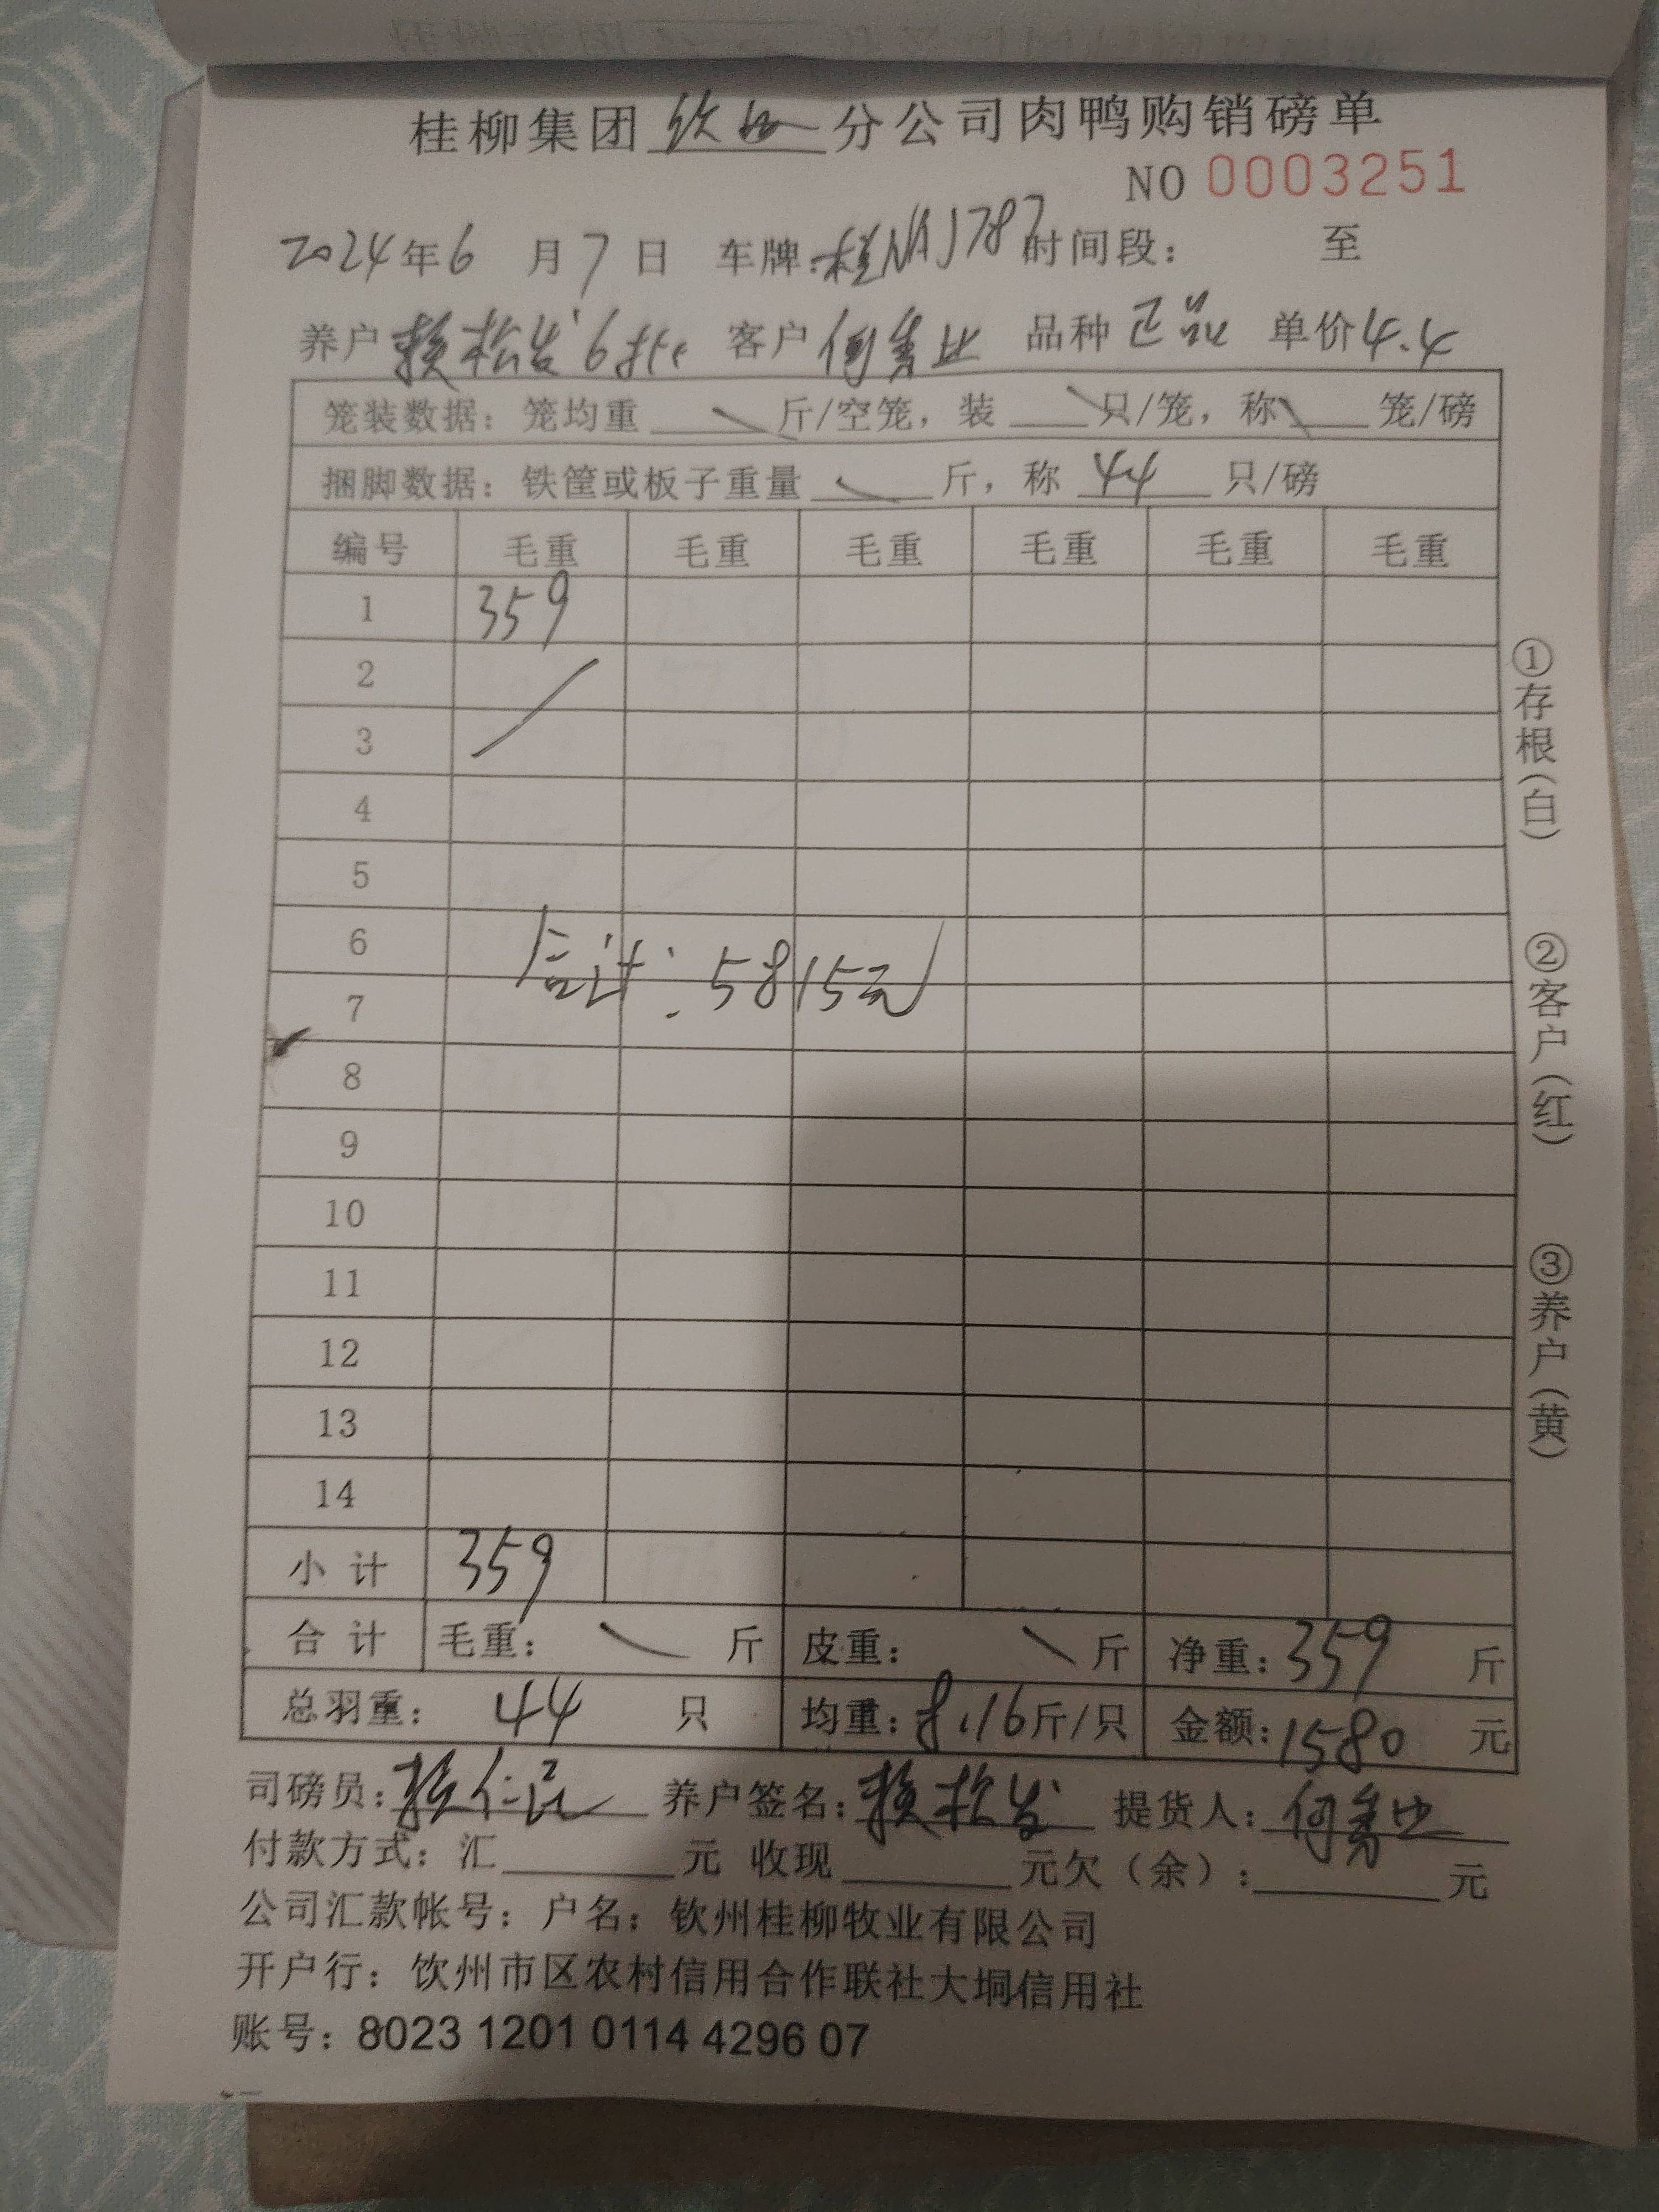 桂柳集团 钦州 分公司肉鸭购销磅单
NO 0003251
2024年6月7日 车牌:桂NAJ787 时间段: 至
养户 赖松发 6批 客户 何秀 品种 正品 单价 4.4
笼装数据：笼均重 斤/空笼，装 只/笼，称 笼/磅
捆脚数据：铁筐或板子重量 斤，称 44 只/磅
编号 毛重 毛重 毛重 毛重 毛重 毛重
1 359
2
3
4
5
6
合计：5815元
7
8
9
10
11
12
13
14
小计 359
合计 毛重： 斤 皮重： 斤 净重：359 斤
总羽重： 44 只 均重：8.16斤/只 金额：1580 元
司磅员： 养户签名：赖松发 提货人：何秀
付款方式：汇 元 收现 元欠（余）： 元
公司汇款帐号：户名：钦州桂柳牧业有限公司
开户行：饮州市区农村信用合作联社大垌信用社
账号：8023 1201 0114 4296 07
①存根(白)
②客户(红)
③养户(黄)